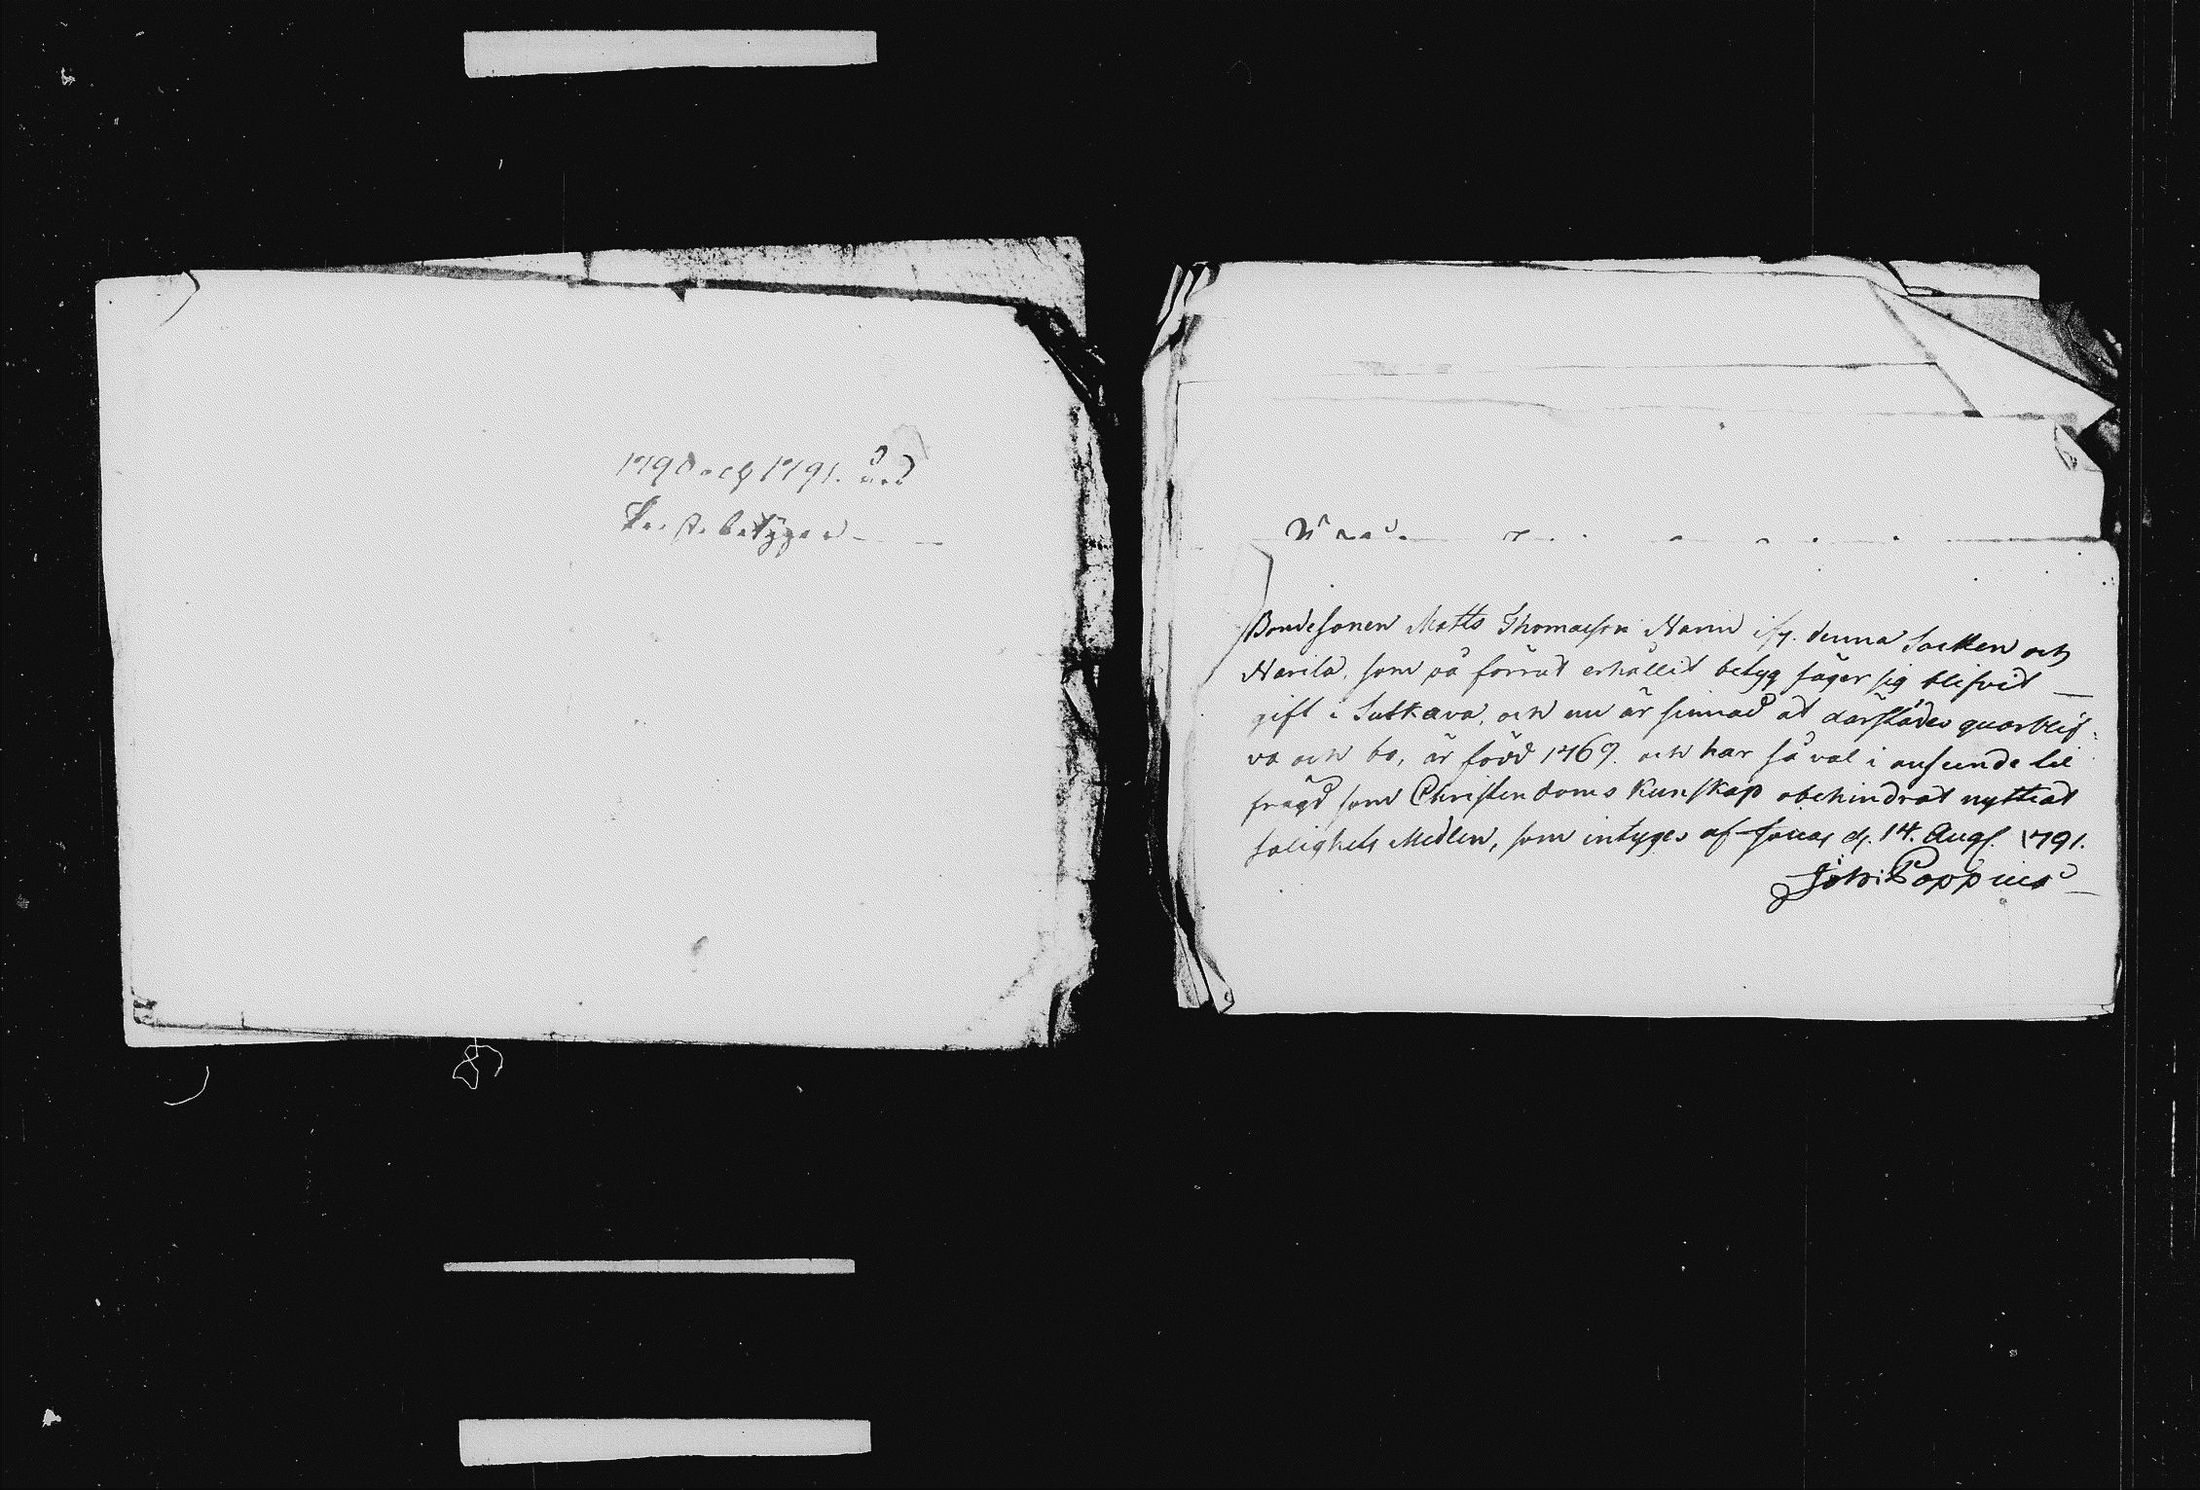 1790 och 1791. års
Prästebetyger
Bondesonen Matts Thomasson Narin ifr. denna Socken och
Narila, som på förrut erhållit betyg säger sig blifvit
gift i Sulkava, och nu är sinnad at därstädes quarblif-
va och bo, är född 1769. och har så väl i anseende til
frägd som Christendoms kunskap obehindrat nyttiat
salighets Medlen, som intyges af Jouxas d. 14. Aug. 1791.
Joh: Poppius